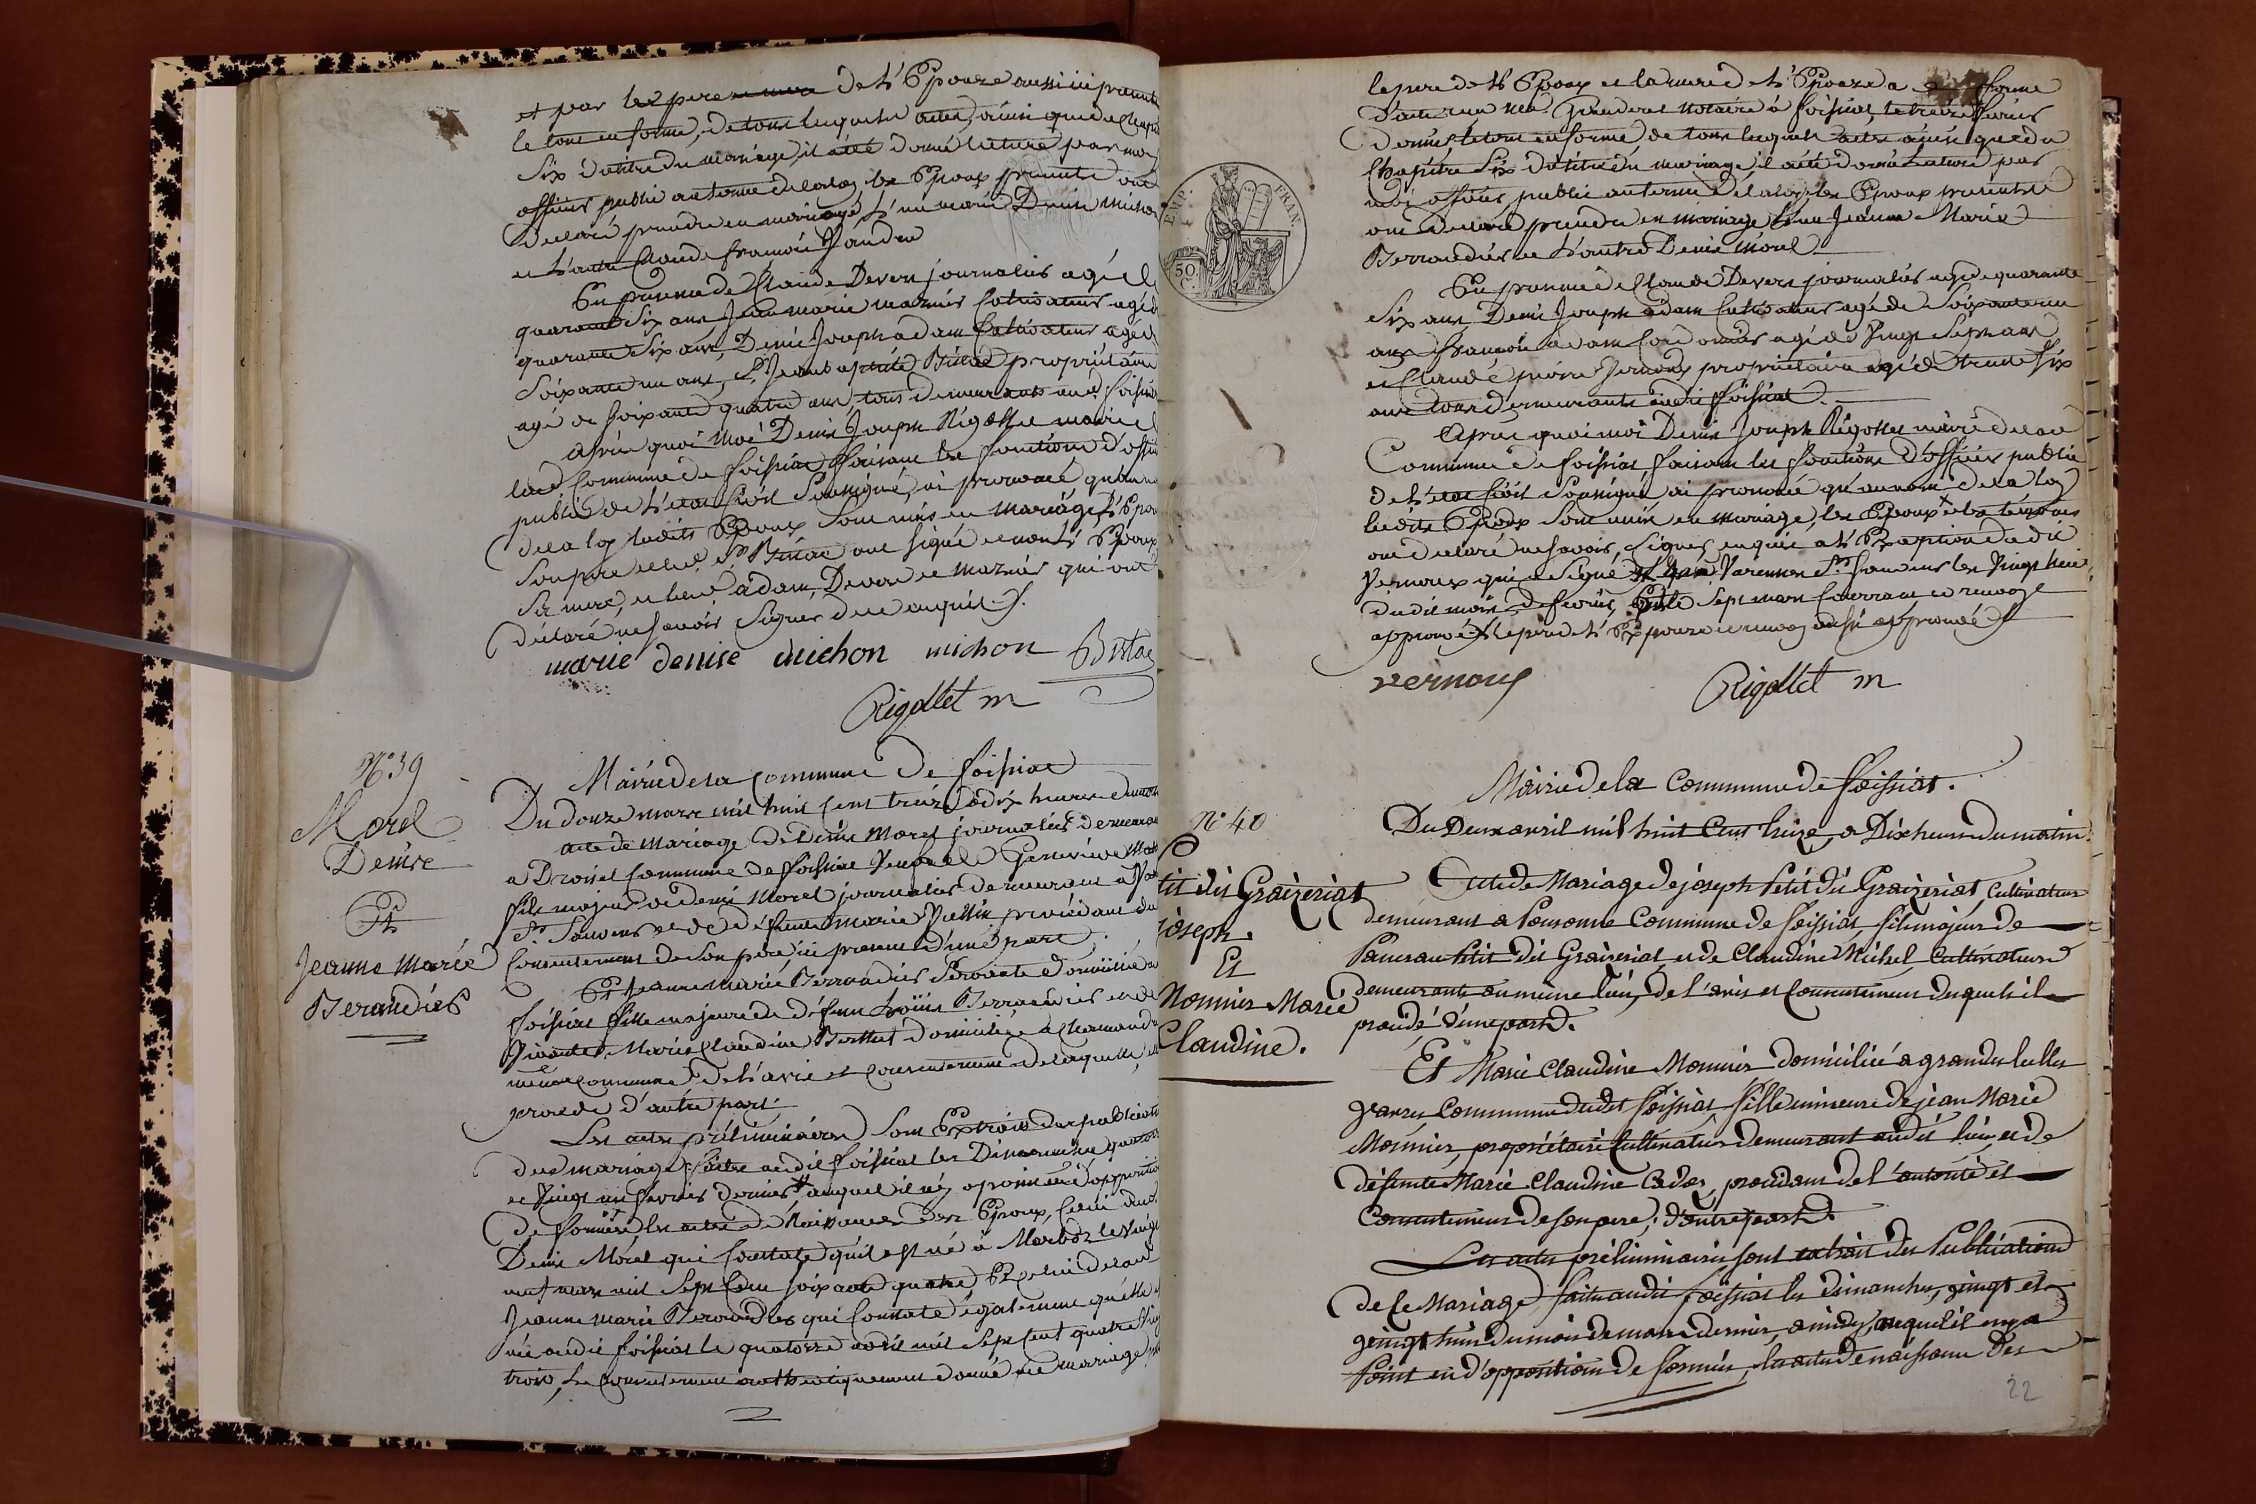 et par les pere et mere de l'Epouse aussi ici presents
le tout en forme, de tous lesquels actes, ainsi que du Chapitre
Six du titre du mariage, il a été donné lecture par moi
officier public au terme de la loy, les Epoux presents ont
declaré prendre en mariage l'un marie Denise michon
et l'autre Claude françois
En presence de Claude Devers journalier agé de
quarante Six ans, Jean marie marmier Cultivateur agé de
quarante Six ans, Denis Joseph adam Cultivateur agé de
Soixante un ans, et Jean baptiste propriétaire
agé de Soixante quatre ans, tous demeurants aud. foissiat
après quoi moi Denis Joseph Rigollet maire de
lad. Commune de foissiat faisant les fonctions d'officier
public de l'état Civil Soussigné, ai prononcé qu'au nom
de la loy lesdits Epoux Sont unis en mariage, l'Epouse
Son pere et led. Sr ont Signé et non l'Epoux
Sa mere, et lesd. adam, Devers et marmier qui ont
déclaré ne Savoir Signer de ce enquis.
marie denise michon michon
Rigollet m
N° 39
Morel
Denise
Et
Jeanne Marie
Beraudier
Mairie de la Commune de foissiat
Du douze mars mil huit Cent treize à dix heures du matin
acte de Mariage de Denis Morel journalier demeurant
a Commune de foissiat veuf de Genevieve
fils majeur de Denis Morel journalier demeurant a
St Sauveur et de défunte Marie procédant du
Consentement de Son pere ici present d'une part,
Et Jeanne Marie Berraudier Servante domiciliée a
foissiat fille majeure de défunt Berraudier et de
vivante Marie Claudine Berthet domiciliée a
même Commune, de l'avis et Consentement de laquelle elle
procede d'autre part.
Les actes préliminaires Sont Extraits des publications
dud. mariage faites audit foissiat les Dimanches quatorze
et vingt un fevrier dernier auquel il n'y a point eu d'opposition
de formée, les actes de Naissance des Epoux, Celui dud.
Denis Morel qui Constate qu'il est né à Marboz le vingt
neuf mars mil Sept Cent Soixante quatre Et celui de lad.
Jeanne Marie Berraudier qui Constate également qu'elle est
née audit foissiat le quatorze avril mil Sept Cent quatre vingt
trois, Le Consentement authentiquement donné au mariage par
le pere de l'Epoux et la mere de l'Epouse a forme
d'acte reçu Me notaire à foissiat, le treize fevrier
dernier, le tout en forme, de tous lesquels actes ainsi que du
Chapitre Six du titre du mariage, il a été donné lecture par
moi officier public au terme de la loy, les Epoux presents
ont declaré prendre en mariage l'un Jeanne Marie
Berraudier et l'autre Denis Morel
En presence de Claude Devers journalier agé de quarante
Six ans, Denis Joseph adam Cultivateur agé de Soixante un
ans, françois adam Cordonnier agé de vingt Sept ans
et Claude pierre Vernoux propriétaire agé de trente Six
ans tous demeurants audit foissiat.
Après quoi moi Denis Joseph Rigollet maire de lad.
Commune de foissiat faisant les fonctions d'officier public
de l'état Civil Soussigné ai prononcé qu'au nom de la loy
lesdits Epoux Sont unis en mariage, les Epoux et les témoins
ont declaré ne Savoir, Signer, enquis a l'Exception dudit
Vernoux qui a Signé Varennes St Sauveur les vingt huit
dudit mois de fevrier, Et le Sept mars Courrant ce renvoy
approuvé le pere de l'Epouse ce renvoy aussi approuvé
vernoux
Rigollet m
EMP. FRAN.
50
C.
N° 40
Petit dit Graizeriat
joseph.
Et
Monnier Marie
Claudine.
Mairie de la Commune de foissiat.
Du Deux avril mil huit Cent treize, a Dix heures du matin.
Acte de Mariage de joseph Petit dit Graizeriat, Cultivateur
demeurant a Commune de foissiat, fils majeur de
Petit dit Graizeriat et de Claudine Michel, Cultivateurs
demeurants au même lieu, de l'avis et Consentement desquels il
procède, d'une part.
Et Marie Claudine Monnier domiciliée a grandes
granges Commune dudit foissiat fille mineure de jean Marie
Monnier, propriétaire Cultivateur demeurant audit lieu, et de
défunte Marie Claudine, procédant de l'autorité et
Consentement de son pere, d'autre part.
Les actes préliminaires sont extraits des Publications
de ce Mariage faites audit foissiat les dimanches, vingt et
vingt huit du mois de mars dernier, a midy, auquel il n'y a
point eu d'opposition de formée, les actes de naissance des
22